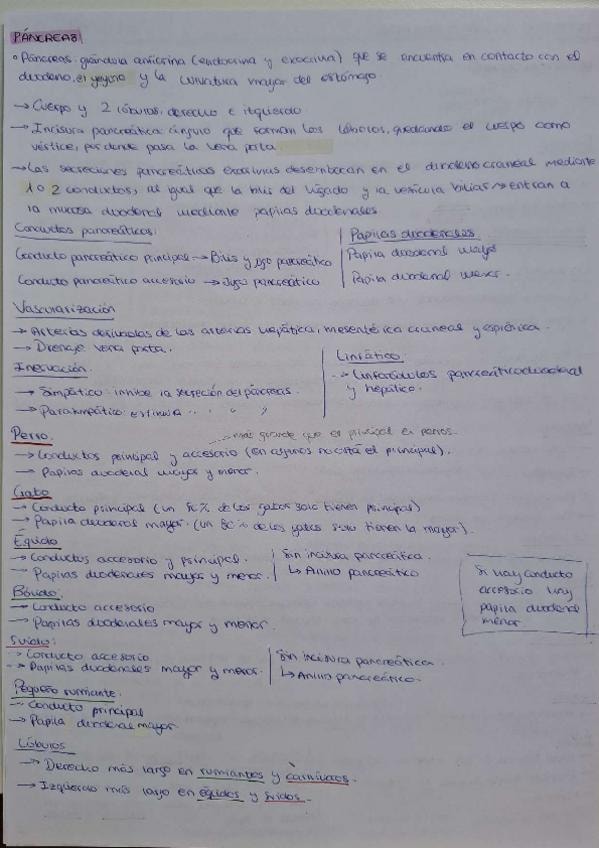 PÁNCREAS
° Páncreas: glándula anficrina (endocrina y exocrina) que se encuentra en contacto con el
duodeno, el yeyuno y la curvatura mayor del estómago.
→ Cuerpo y 2 lóbulos, derecho e izquierdo
→ Incisura pancreática: ángulo que forman los lóbulos, quedando el cuerpo como
vértice, por donde pasa la vena porta.
→ Las secreciones pancreáticas exocrinas desembocan en el duodeno craneal mediante
1 o 2 conductos, al igual que la bilis del hígado y la vesícula biliar → entran a
la mucosa duodenal mediante papilas duodenales.
Conductos pancreáticos:
Conducto pancreático principal → Bilis y jugo pancreático
Conducto pancreático accesorio → Jugo pancreático
Papilas duodenales
Papila duodenal mayor
Papila duodenal menor.
Vascularización
→ Arterias derivadas de las arterias hepática, mesentérica craneal y esplénica.
→ Drenaje vena porta.
Inervación.
→ Simpático: inhibe la secreción del páncreas.
→ Parasimpático: estimula " " " "
Linfático.
→ Linfonódulos pancreáticoduodenal
y hepático.
Perro.
más grande que el principal en perros.
→ Conductos principal y accesorio (en algunos no está el principal).
→ Papilas duodenal mayor y menor.
Gato
→ Conducto principal (un 80% de los gatos solo tienen principal)
→ Papila duodenal mayor. (un 80% de los gatos solo tienen la mayor).
Équido
→ Conductos accesorio y principal.
→ Papilas duodenales mayor y menor.
Sin incisura pancreática.
↳ Anillo pancreático
Si hay conducto
accesorio hay
papila duodenal
menor
Bóvido.
→ Conducto accesorio
→ Papilas duodenales mayor y menor.
Suido:
→ Conducto accesorio
→ Papilas duodenales mayor y menor.
Sin incisura pancreática.
↳ Anillo pancreático.
Pequeño rumiante.
→ Conducto principal
→ Papila duodenal mayor.
Lóbulos
→ Derecho más largo en rumiantes y carnívoros.
→ Izquierdo más largo en équidos y suidos.